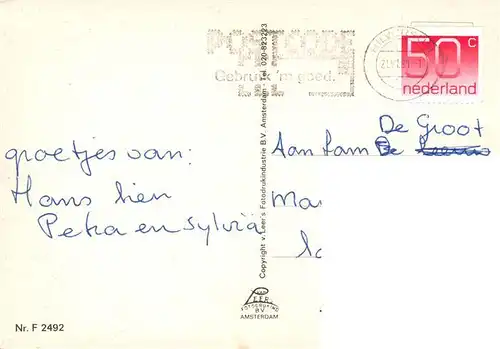 POSTCODE
Gebruik 'm goed.
50 c
nederland
groetjes van:
Hans Lien
Petra en Sylvia
De Groot
Aan Fam De
Ma
Copyright v. Leer's Fotodrukindustrie B.V. Amsterdam - Tel. 020-823223
VAN
LEER
FOTODRUKIND
BV
AMSTERDAM
Nr. F 2492